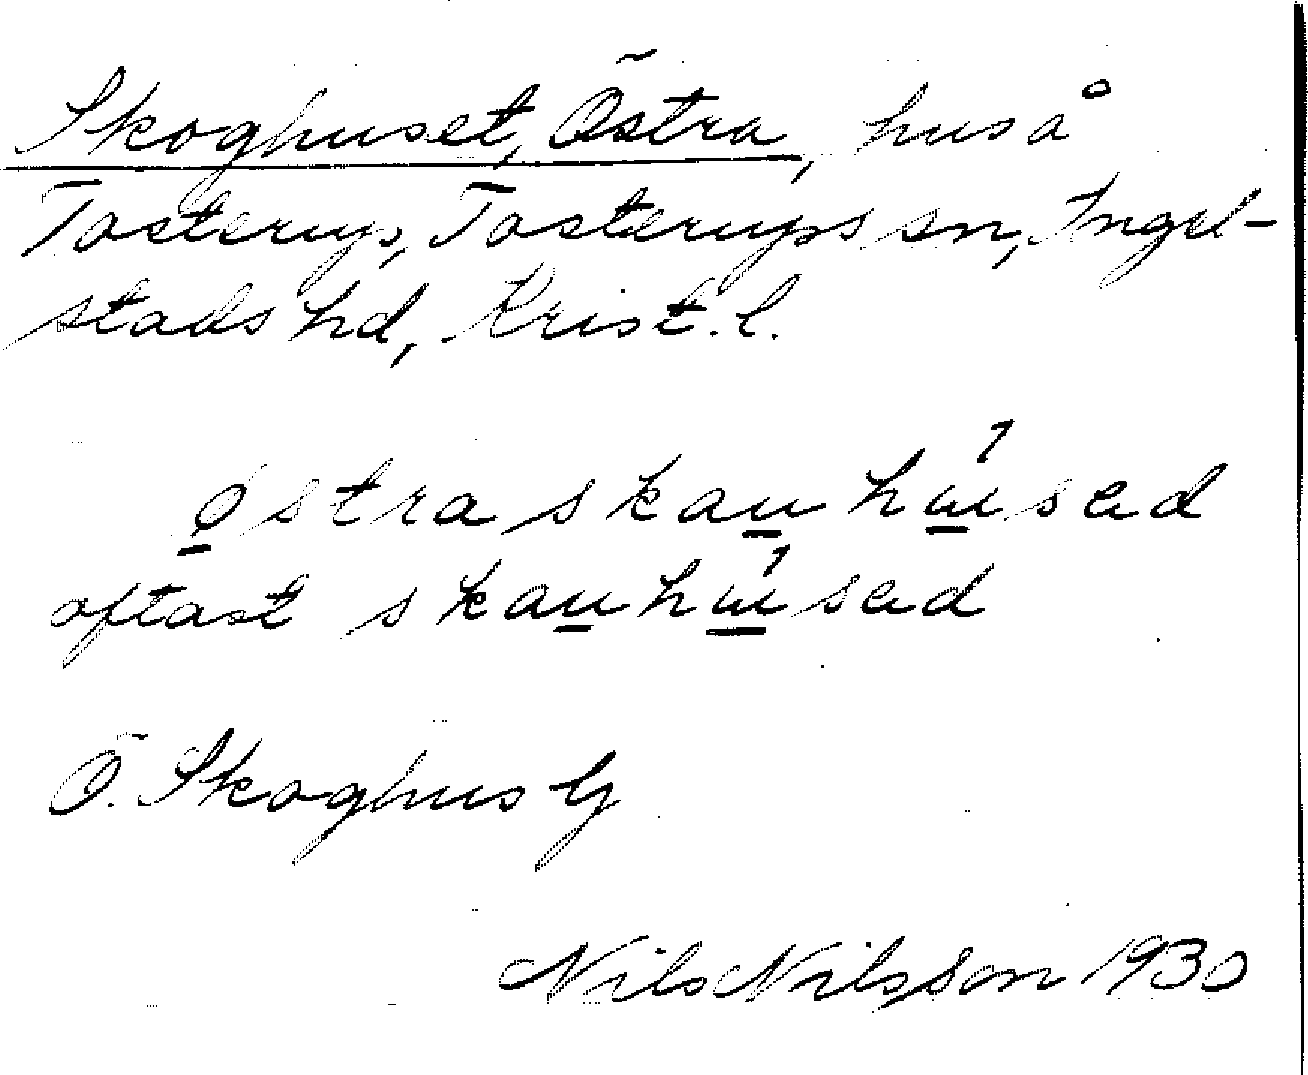 Skoghuset, Östra, hus å
Tosterup, Tosterups sn, Ingel-
stads hd, Krist. l.
østra skau húsed
oftast skauhúsed
Ö. Skoghus G
Nils Nilsson 1930